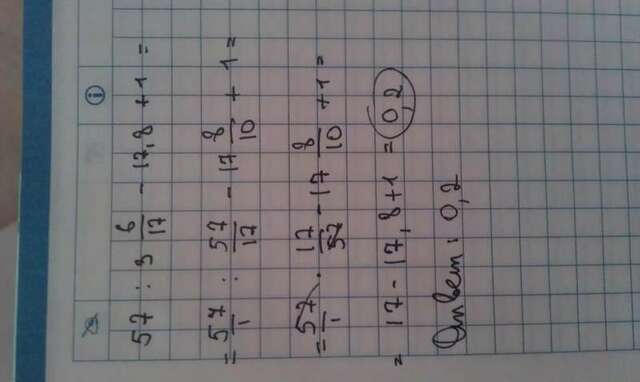 57 : 3 6/17 - 17,8 + 1 =
= 57/1 : 57/17 - 17 8/10 + 1 =
= 57/1 · 17/57 - 17 8/10 + 1 =
= 17 - 17,8 + 1 = 0,2
Ответ: 0,2